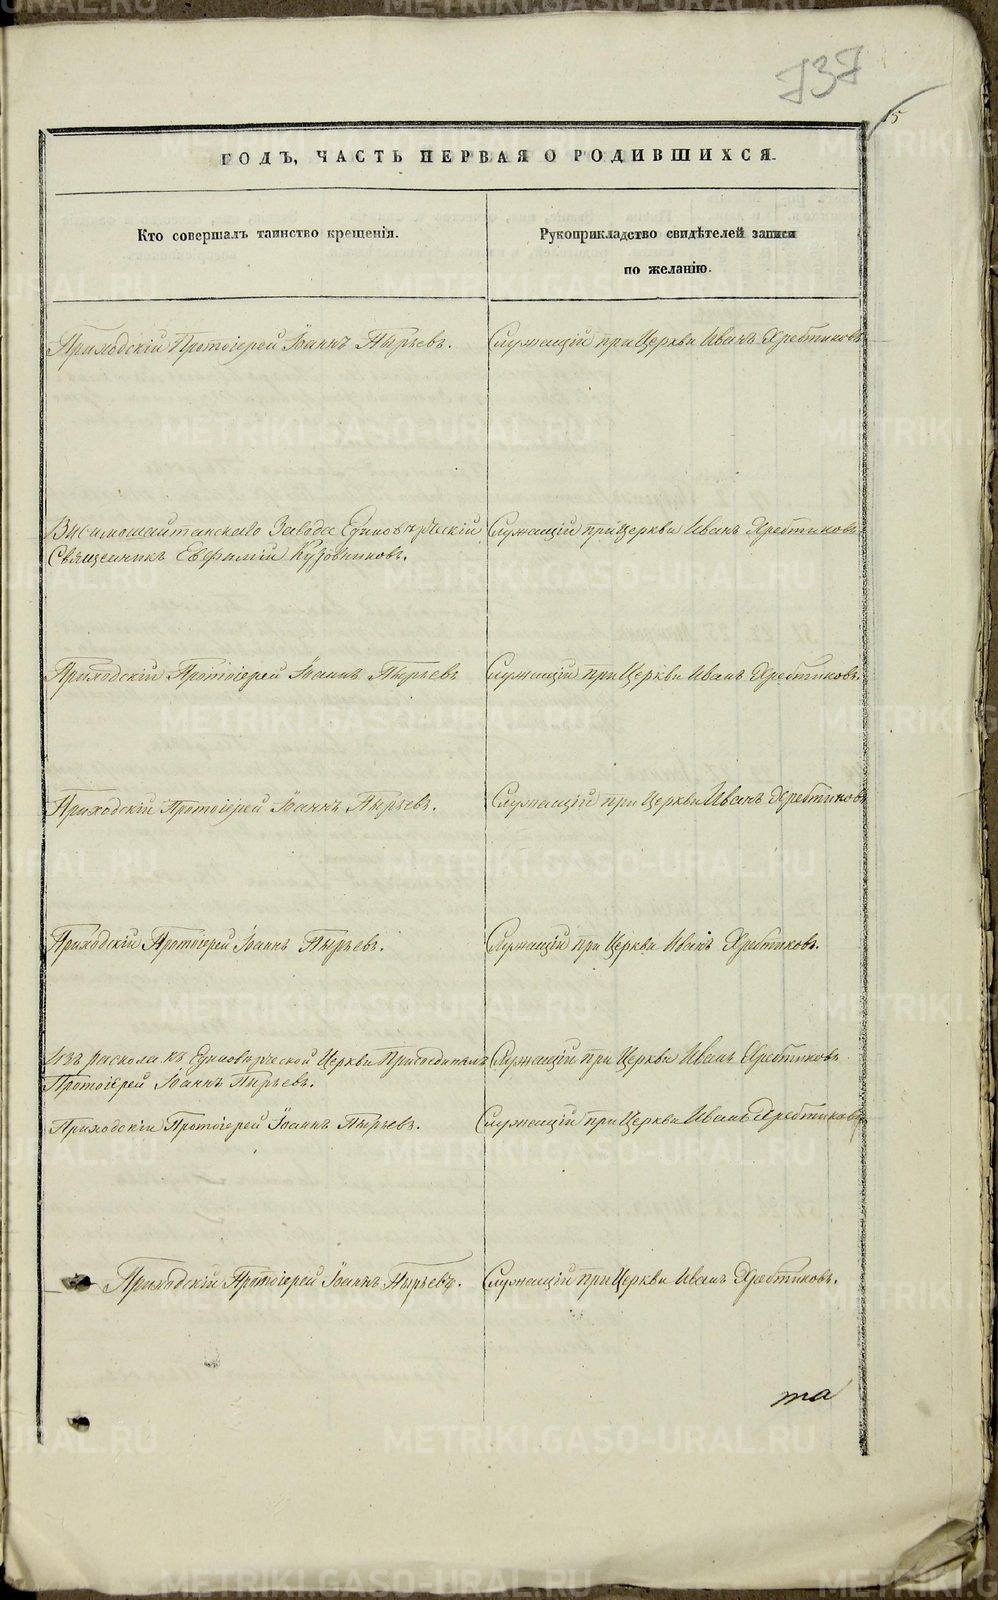 737
15
ГОДЪ, ЧАСТЬ ПЕРВАЯ О РОДИВШИХСЯ.
Кто совершалъ таинство крещенія.
Рукоприкладство свидѣтелей записи
по желанію.
Приходскій Протоіерей Іоаннъ Пырьевъ.
Служащій при Церкви Иванъ Хребтиковъ
Висимошайтанскаго Завода Единовѣрческій
Священникъ Евфимій Кузовниковъ.
Служащій при Церкви Иванъ Хребтиковъ
Приходскій Протоіерей Іоаннъ Пырьевъ
Служащій при Церкви Иванъ Хребтиковъ.
Приходскій Протоіерей Іоаннъ Пырьевъ.
Служащій при Церкви Иванъ Хребтиковъ
Приходскій Протоіерей Іоаннъ Пырьевъ.
Служащій при Церкви Иванъ Хребтиковъ.
Изъ раскола къ Единоверческой Церкви Присоединялъ
Протоіерей Іоаннъ Пырьевъ.
Служащій при Церкви Иванъ Хребтиковъ
Приходскій Протоіерей Іоаннъ Пырьевъ.
Служащій при Церкви Иванъ Хребтиковъ
Приходскій Протоіерей Іоаннъ Пырьевъ.
Служащій при Церкви Иванъ Хребтиковъ.
та
METRIKI.GASO-URAL.RU